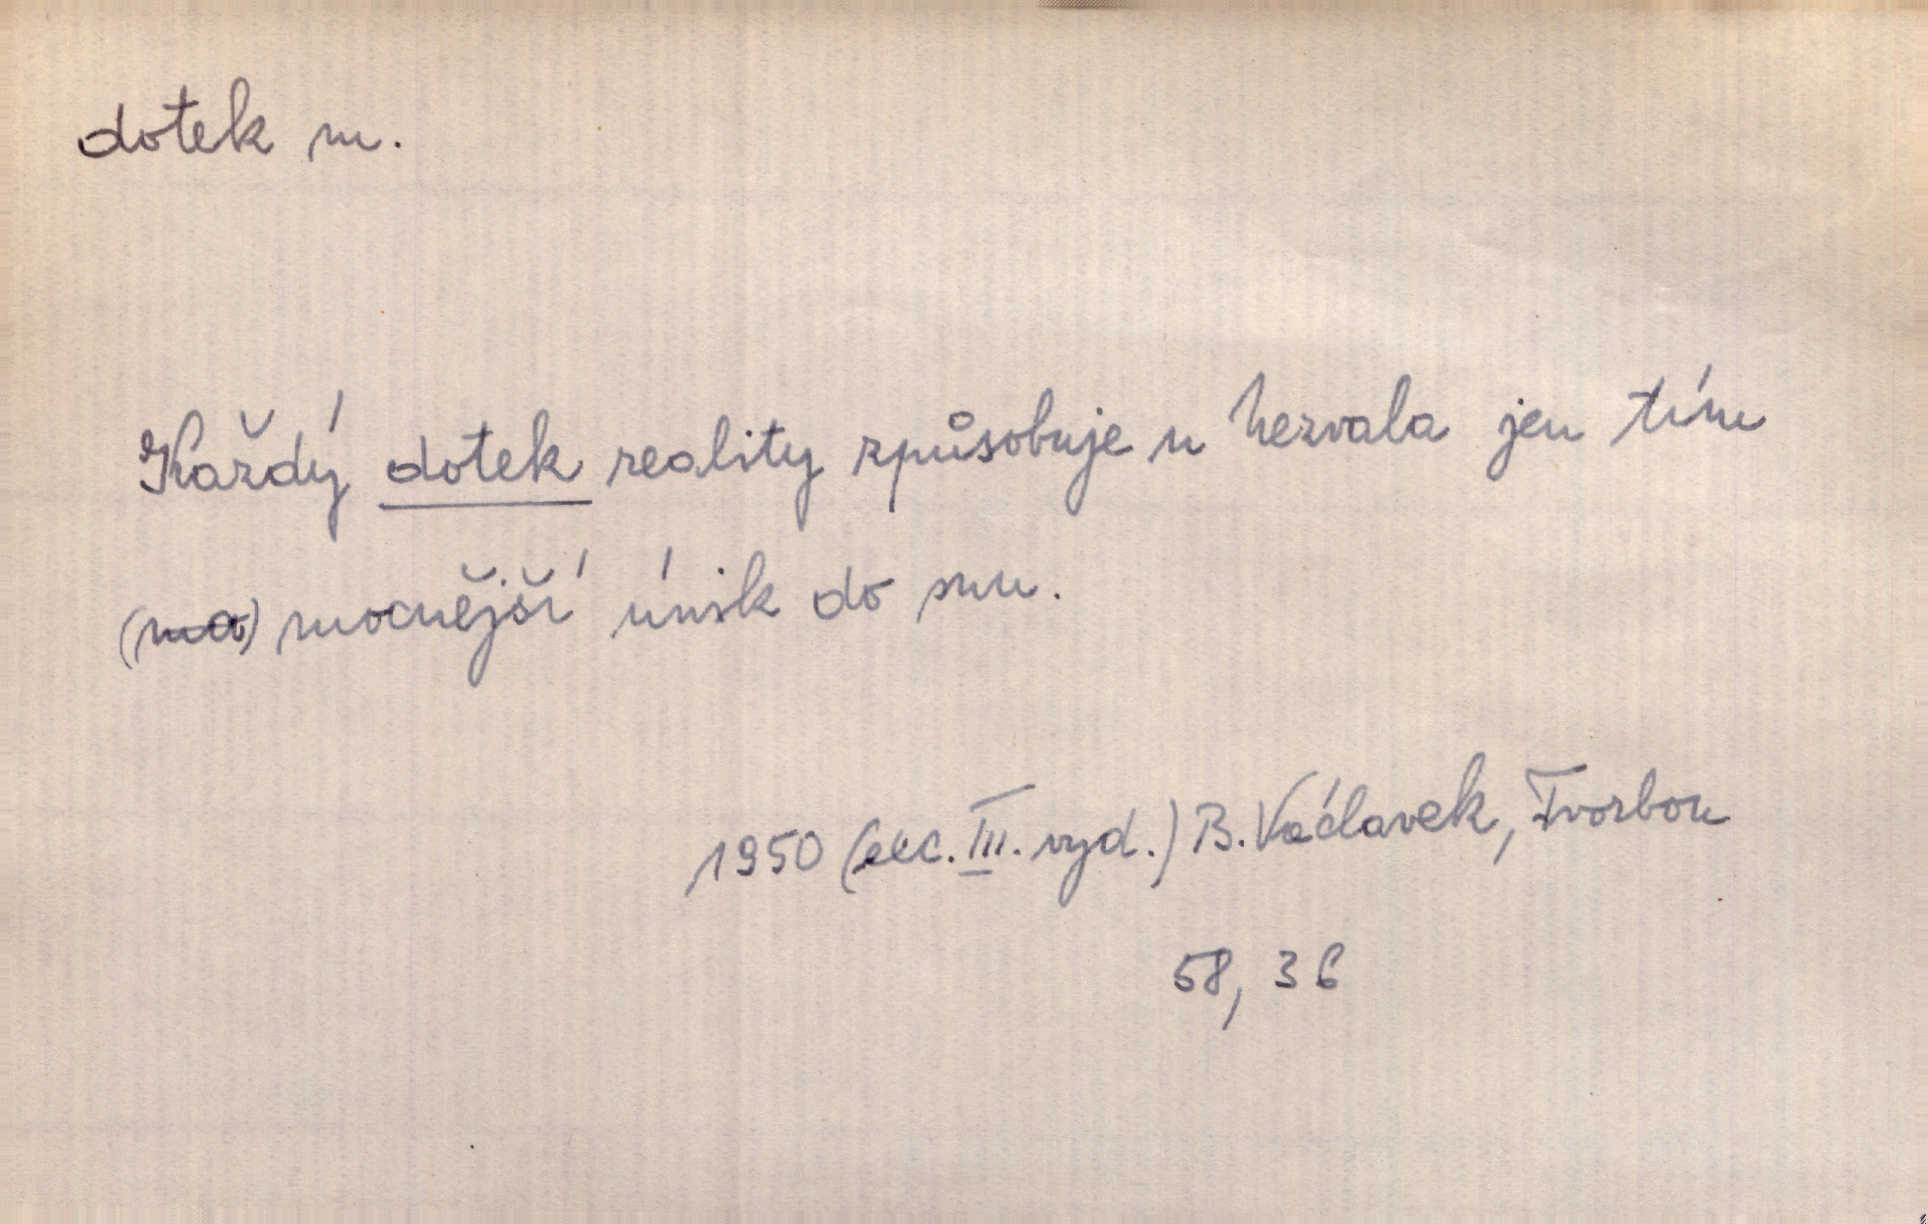 dotek m.
Každý dotek reality způsobuje u Nezvala jen tím
(ma) mocnější únik do snu.
1950 (exc. III. vyd.) B. Václavek, Tvorbou
58, 36